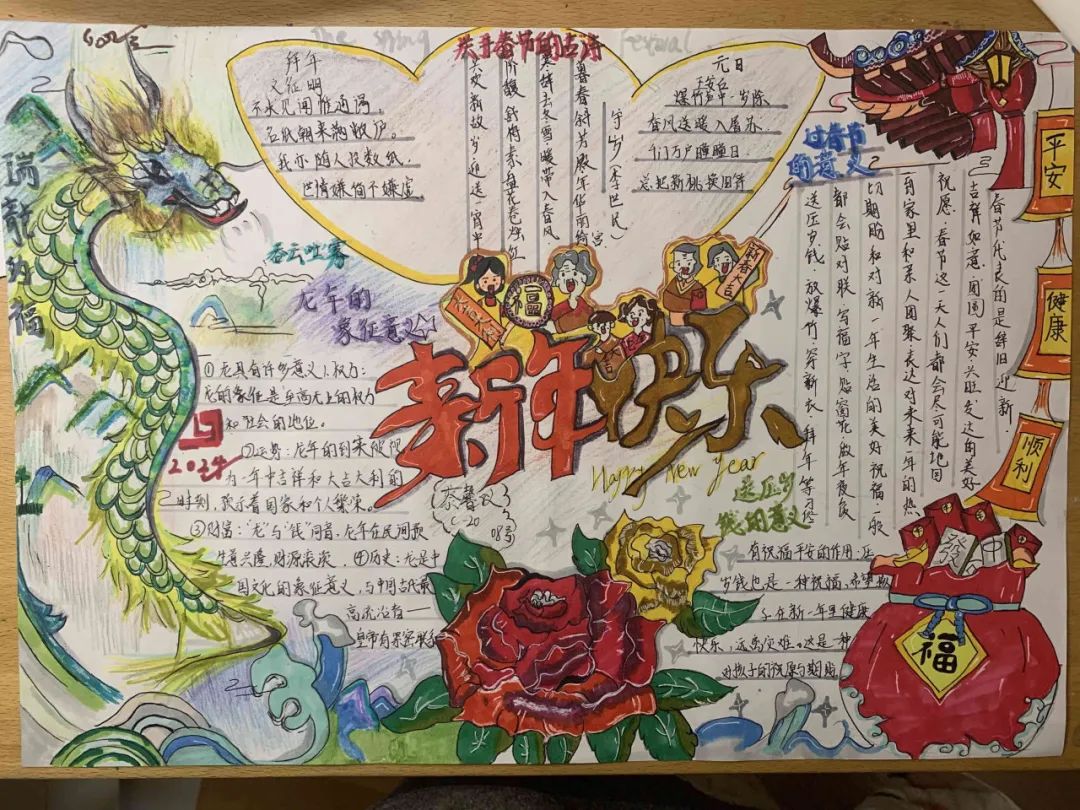 The spring Festival
关于春节的古诗
拜年
文征明
名纸朝来满敝庐。
我亦随人投数纸
世情嫌简不嫌虚
守岁(李世民)
暮景斜芳殿年华丽绮宫
寒辞去冬雪暖带入春风
阶馥舒梅素盘花卷烛红
共欢新故岁迎送一宵中
元日
王安石
爆竹声中一岁除
春风送暖入屠苏
千门万户曈曈日
总把新桃换旧符
瑞龙为福
吞云吐雾
龙年的
象征意义
①龙具有许多意义,权力:
龙的象征是至高无上的权力
和社会的地位。
2024
②运势:龙年的到来被视
为一年中吉祥和大吉大利的
时刻,预示着国家和个人繁荣。
③财富:"龙"与"钱"同音,龙年在民间被
生意兴隆,财源滚滚,④历史:龙是中
国文化的象征意义,与中国古代最
高统治者——
皇帝有紧密联系
福
新春大吉
新年快乐
Happy New Year
C-20
08号
过春节
的意义
春节代表的是辞旧迎新
吉祥如意、团圆平安、兴旺发达的美好
祝愿。春节这一天人们都会尽可能地回
自家里和亲人团聚,表达对未来一年的热
切期盼和对新一年生活的美好祝福,一般
都会贴对联、写福字、贴窗花、做年夜饭
送压岁钱、放爆竹、穿新衣、拜年等习俗
平安
健康
顺利
送压岁
钱的意义
有祝福平安的作用,压
岁钱也是一种祝福,希望孩
子在新一年里健康
快乐,远离灾难。这是一种
对孩子的祝愿与期盼
發
福